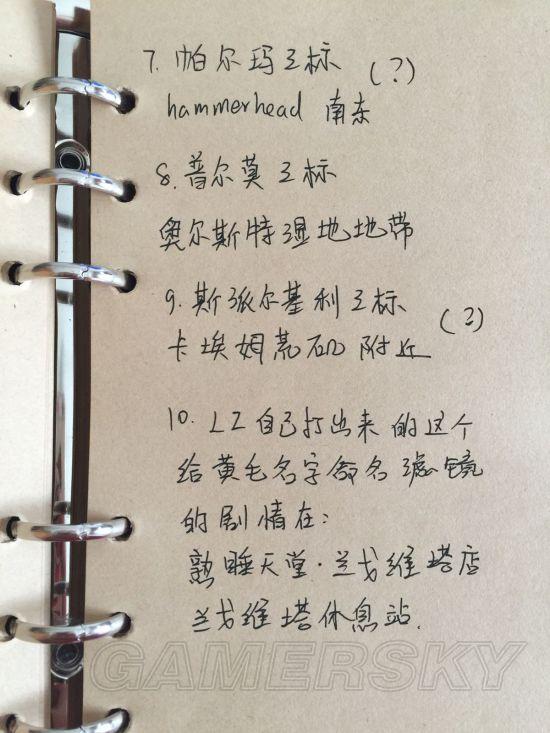 7. 帕尔玛卫标 (?)
hammerhead 南东
8. 普尔莫卫标
奥尔斯特湿地地带
9. 斯派尔基利卫标 (?)
卡埃姆荒矶附近
10. LZ自己打出来的这个
给黄毛名字命名滤镜
的剧情在:
熟睡天堂·兰戈维塔店
兰戈维塔休息站.
GAMERSKY